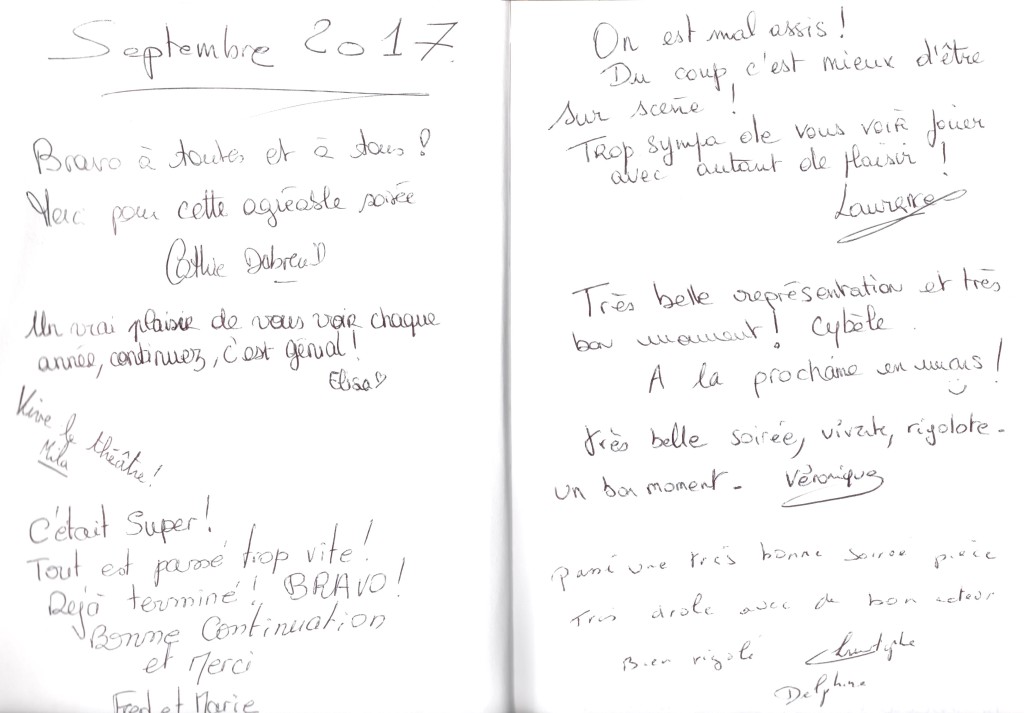 Septembre 2017.
Bravo à toutes et à tous !
Merci pour cette agréable soirée
Cathie Dabreu
Un vrai plaisir de vous voir chaque
année, continuez, c'est génial !
Elisa
Vive le théâtre !
Mila
C'était Super !
Tout est passé trop vite !
Dejà terminé ! BRAVO !
Bonne Continuation
et Merci
Fred et Marie
On est mal assis !
Du coup, c'est mieux d'être
sur scène !
Trop sympa de vous voir jouer
avec autant de plaisir !
Laurence
Très belle représentation et très
bon moment ! Cybèle
A la prochaine en mars !
très belle soirée, vivante, rigolote.
un bon moment. Véronique
passé une très bonne soirée pièce
Tres drole avec de bon acteur
Bien rigolé Christophe
Delphine